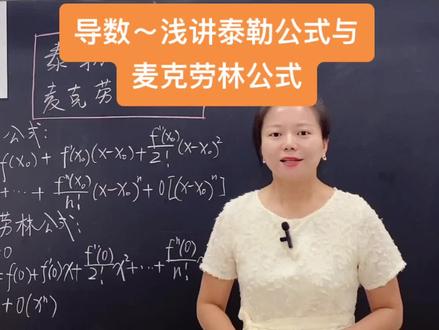 导数～浅讲泰勒公式与
麦克劳林公式
泰
麦克劳
公式:
f(x₀) + f'(x₀)(x-x₀) + f''(x₀)/2! (x-x₀)²
+ ··· + fⁿ(x₀)/n! (x-x₀)ⁿ + 0[(x-x₀)ⁿ]
劳林公式:
0
= f(0) + f'(0)x + f''(0)/2! x² + ··· + fⁿ(0)/n! x
+ 0(xⁿ)